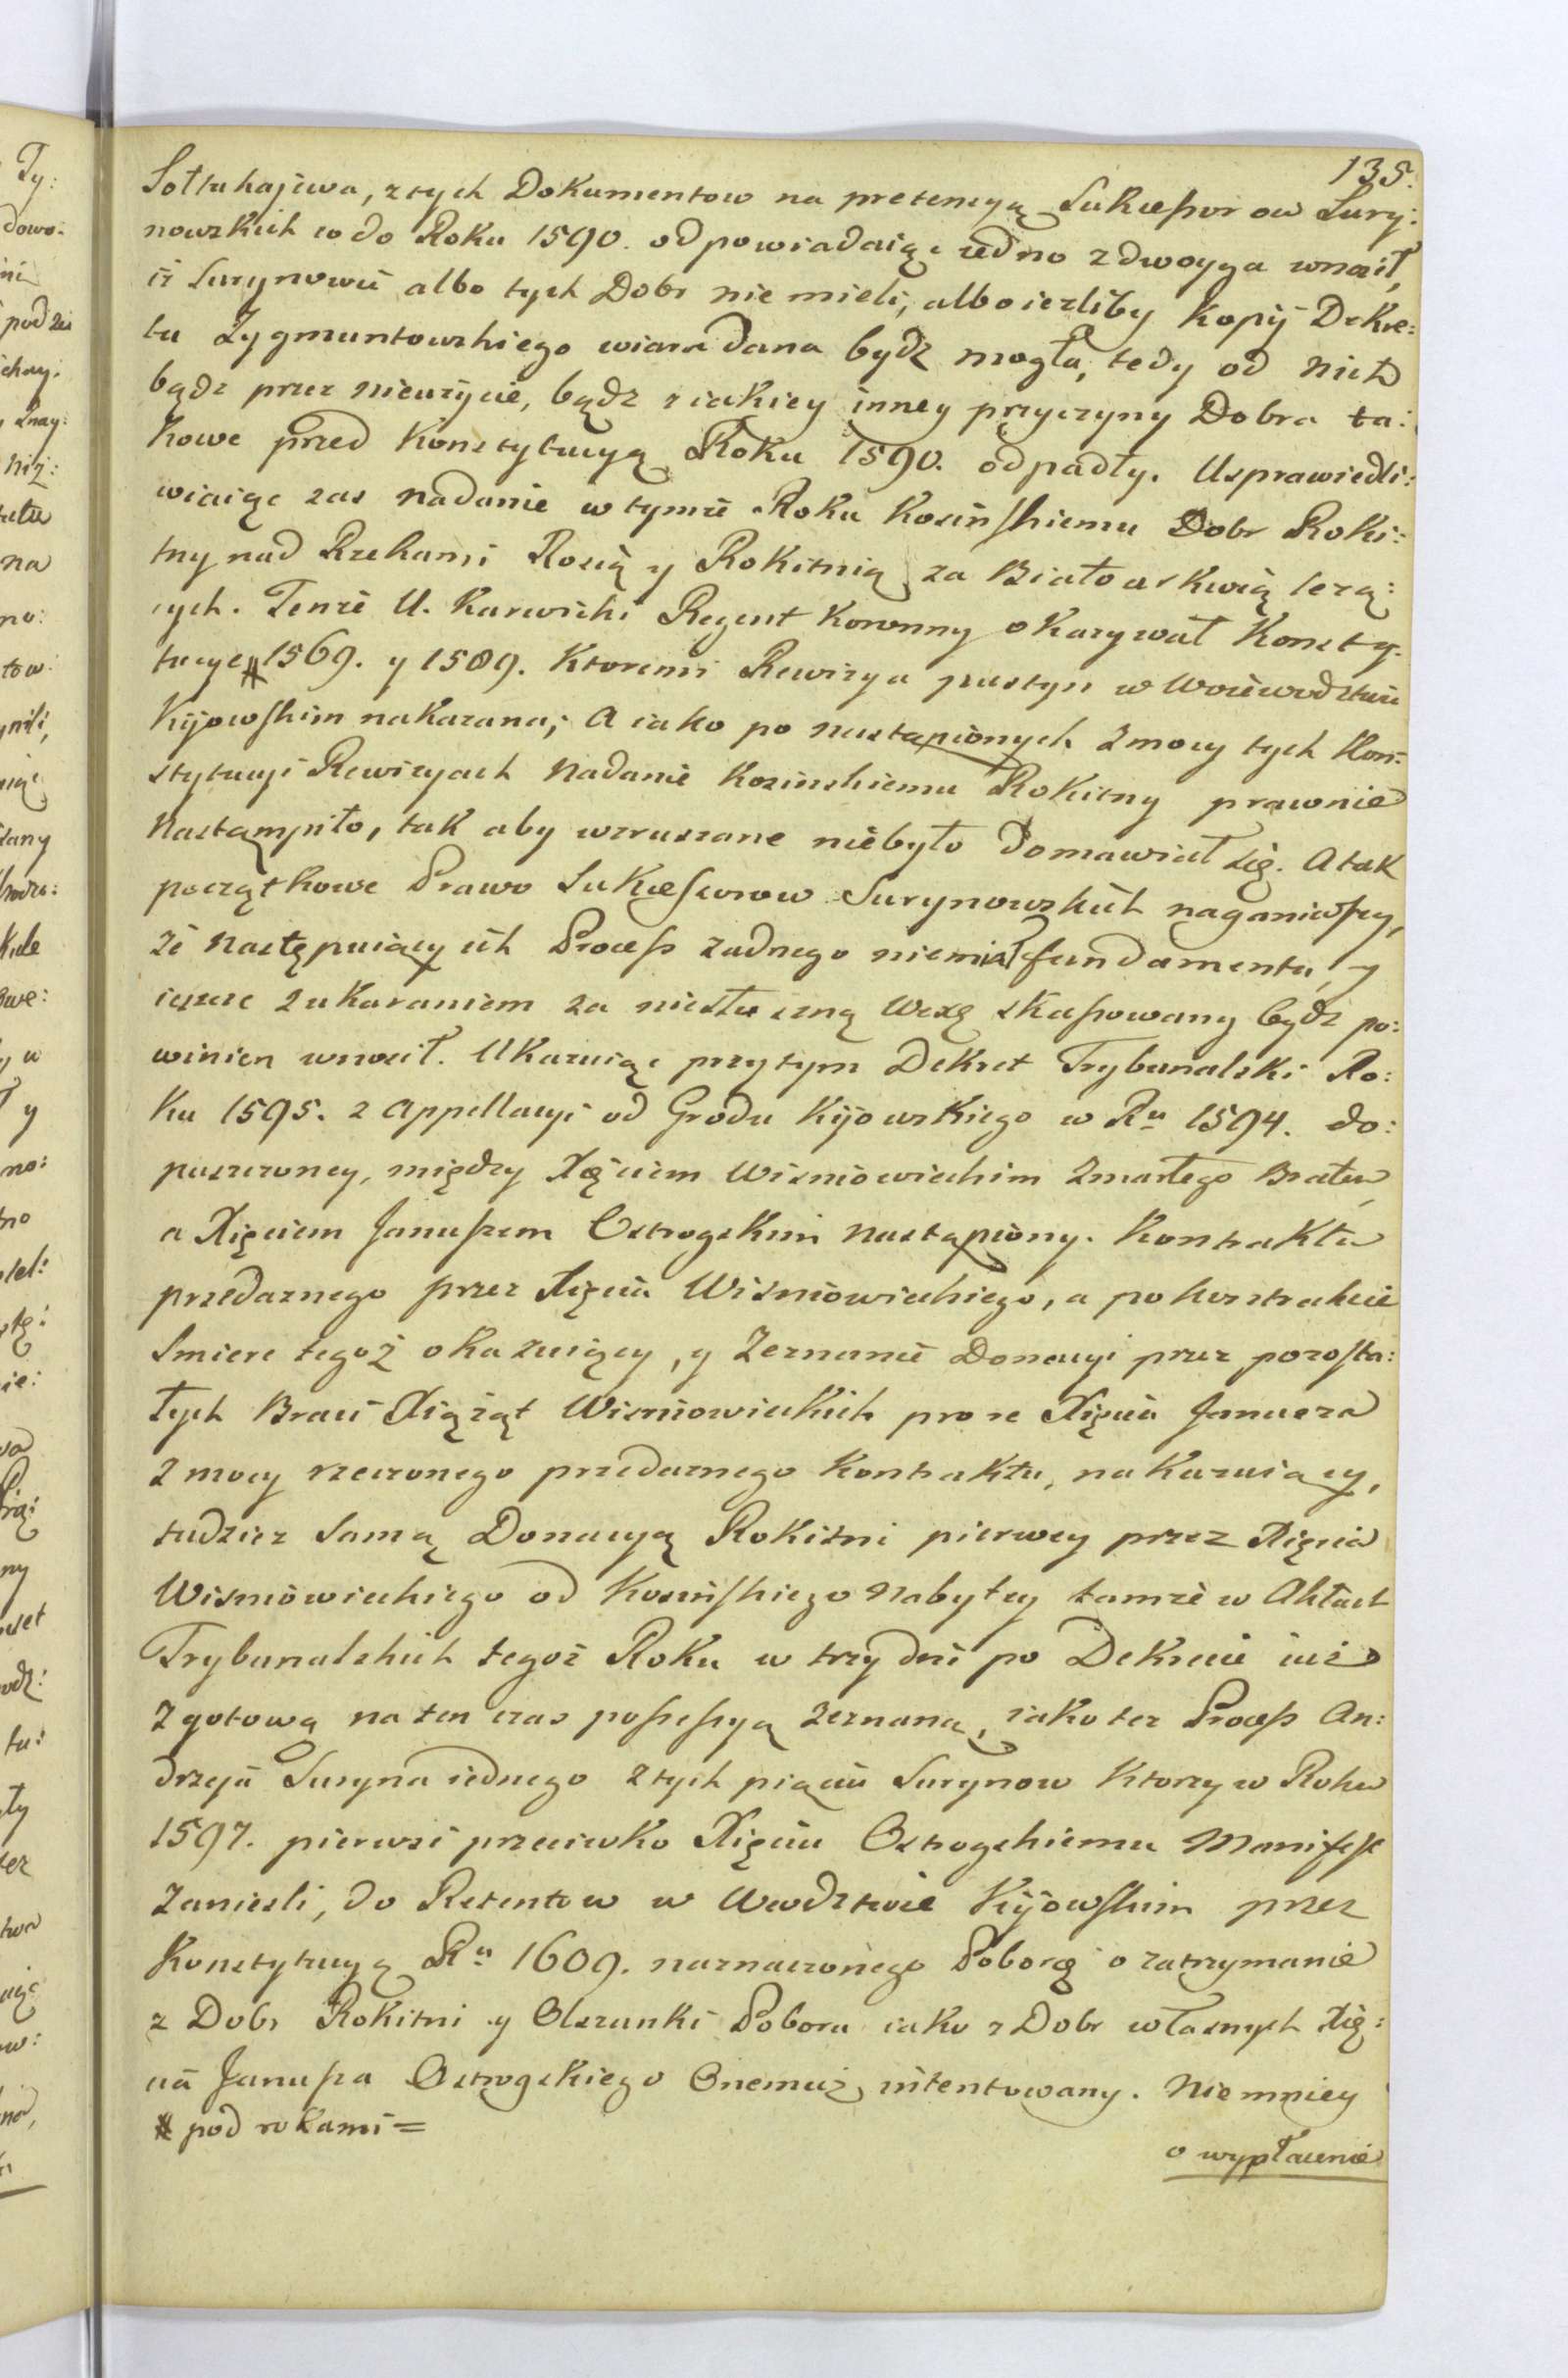 135.
Sołtuhajewa, z tych Dokumentow na pretensyą Sukceßorow Sury:
nowskich co do Roku 1590. odpowiadaiąc iedno z dwoyga wnosił,
iż Surynowie albo tych Dobr nie mieli, albo iezliby Kopij Dekre:
tu Zygmuntowskiego wiara dana bydz mogła, tedy od nich
bądz przez nieużycie, bądz z iakiey inney przyczyny Dobra ta:
kowe przed Konstytucyą Roku 1590. odpadły. Usprawiedli:
wiaiąc zas nadanie w tymże Roku Kosinskiemu Dobr Roki:
tny nad Rzekami Rosią y Rokitnią za Białocerkwią leżą:
cych. Tenże U. Karwicki Regent Koronny okazywał Konsty:
tucye # 1569. y 1589. Ktoremi Rewizya pustyn w Woiewodztwie
Kijowskim nakazana; A iako po nastąpionych z mocy tych Kon:
stytucyi Rewizyach Nadanie Kosinskiemu Rokitny prawnie
Nastąmpiło, tak aby wzruszane niebyło Domawiał się. A tak
początkowe Prawo Sukceßorow Surynowskich naganiwßy,
że Następuiący ich Proceß żadnego niemiał fundamentu, y
ieszcze z ukaraniem za niesłuszną Wexę skaßowany bydz po:
winien wnosił. Ukazuiąc przytym Dekret Trybunalski Ro:
ku 1595. z Appellacyi od Grodu Kijowskiego w Ru 1594. do:
puszczoney, między Xięciem Wisniowieckim zmarłego Bratem,
a Xięciem Janußem Ostrogskim nastąpiony. Kontraktu
przedaznego przez Xięcia Wisniowieckiego, a po kontrakcie
Smierc tegoż okazuiący, y Zeznanie Donacyi przez pozosta:
łych Braci Xiążąt Wisniowieckich pro re Xięcia Janusza
z mocy rzeczonego przedaznego Kontraktu, nakazuiący,
tudziez Samą Donacyą Rokitni pierwey przez Xięcia
Wisniowieckiego od Kosinskiego Nabytey tamże w Aktach
Trybunalskich tegoż Roku w trzy dni po Dekrecie iuż
z gotową na ten czas poßeßyą zeznaną, iako tez Proceß An:
drzeja Suryna iednego z tych pięciu Surynow Ktorzy w Roku
1597. pierwsi przeciwko Xięciu Ostrogskiemu Manifest
Zaniesli, do Retentow w Wwodztwie Kijowskim przez
Konstytucyą Ru 1609. naznaczonego Poborcę o zatrzymanie
z Dobr Rokitni y Olszanki Poboru iako z Dobr własnych Xię:
cia Janußa Ostrogskiego Onemuż intentowany. Niemniey
# pod rokami =
o wypłacenie